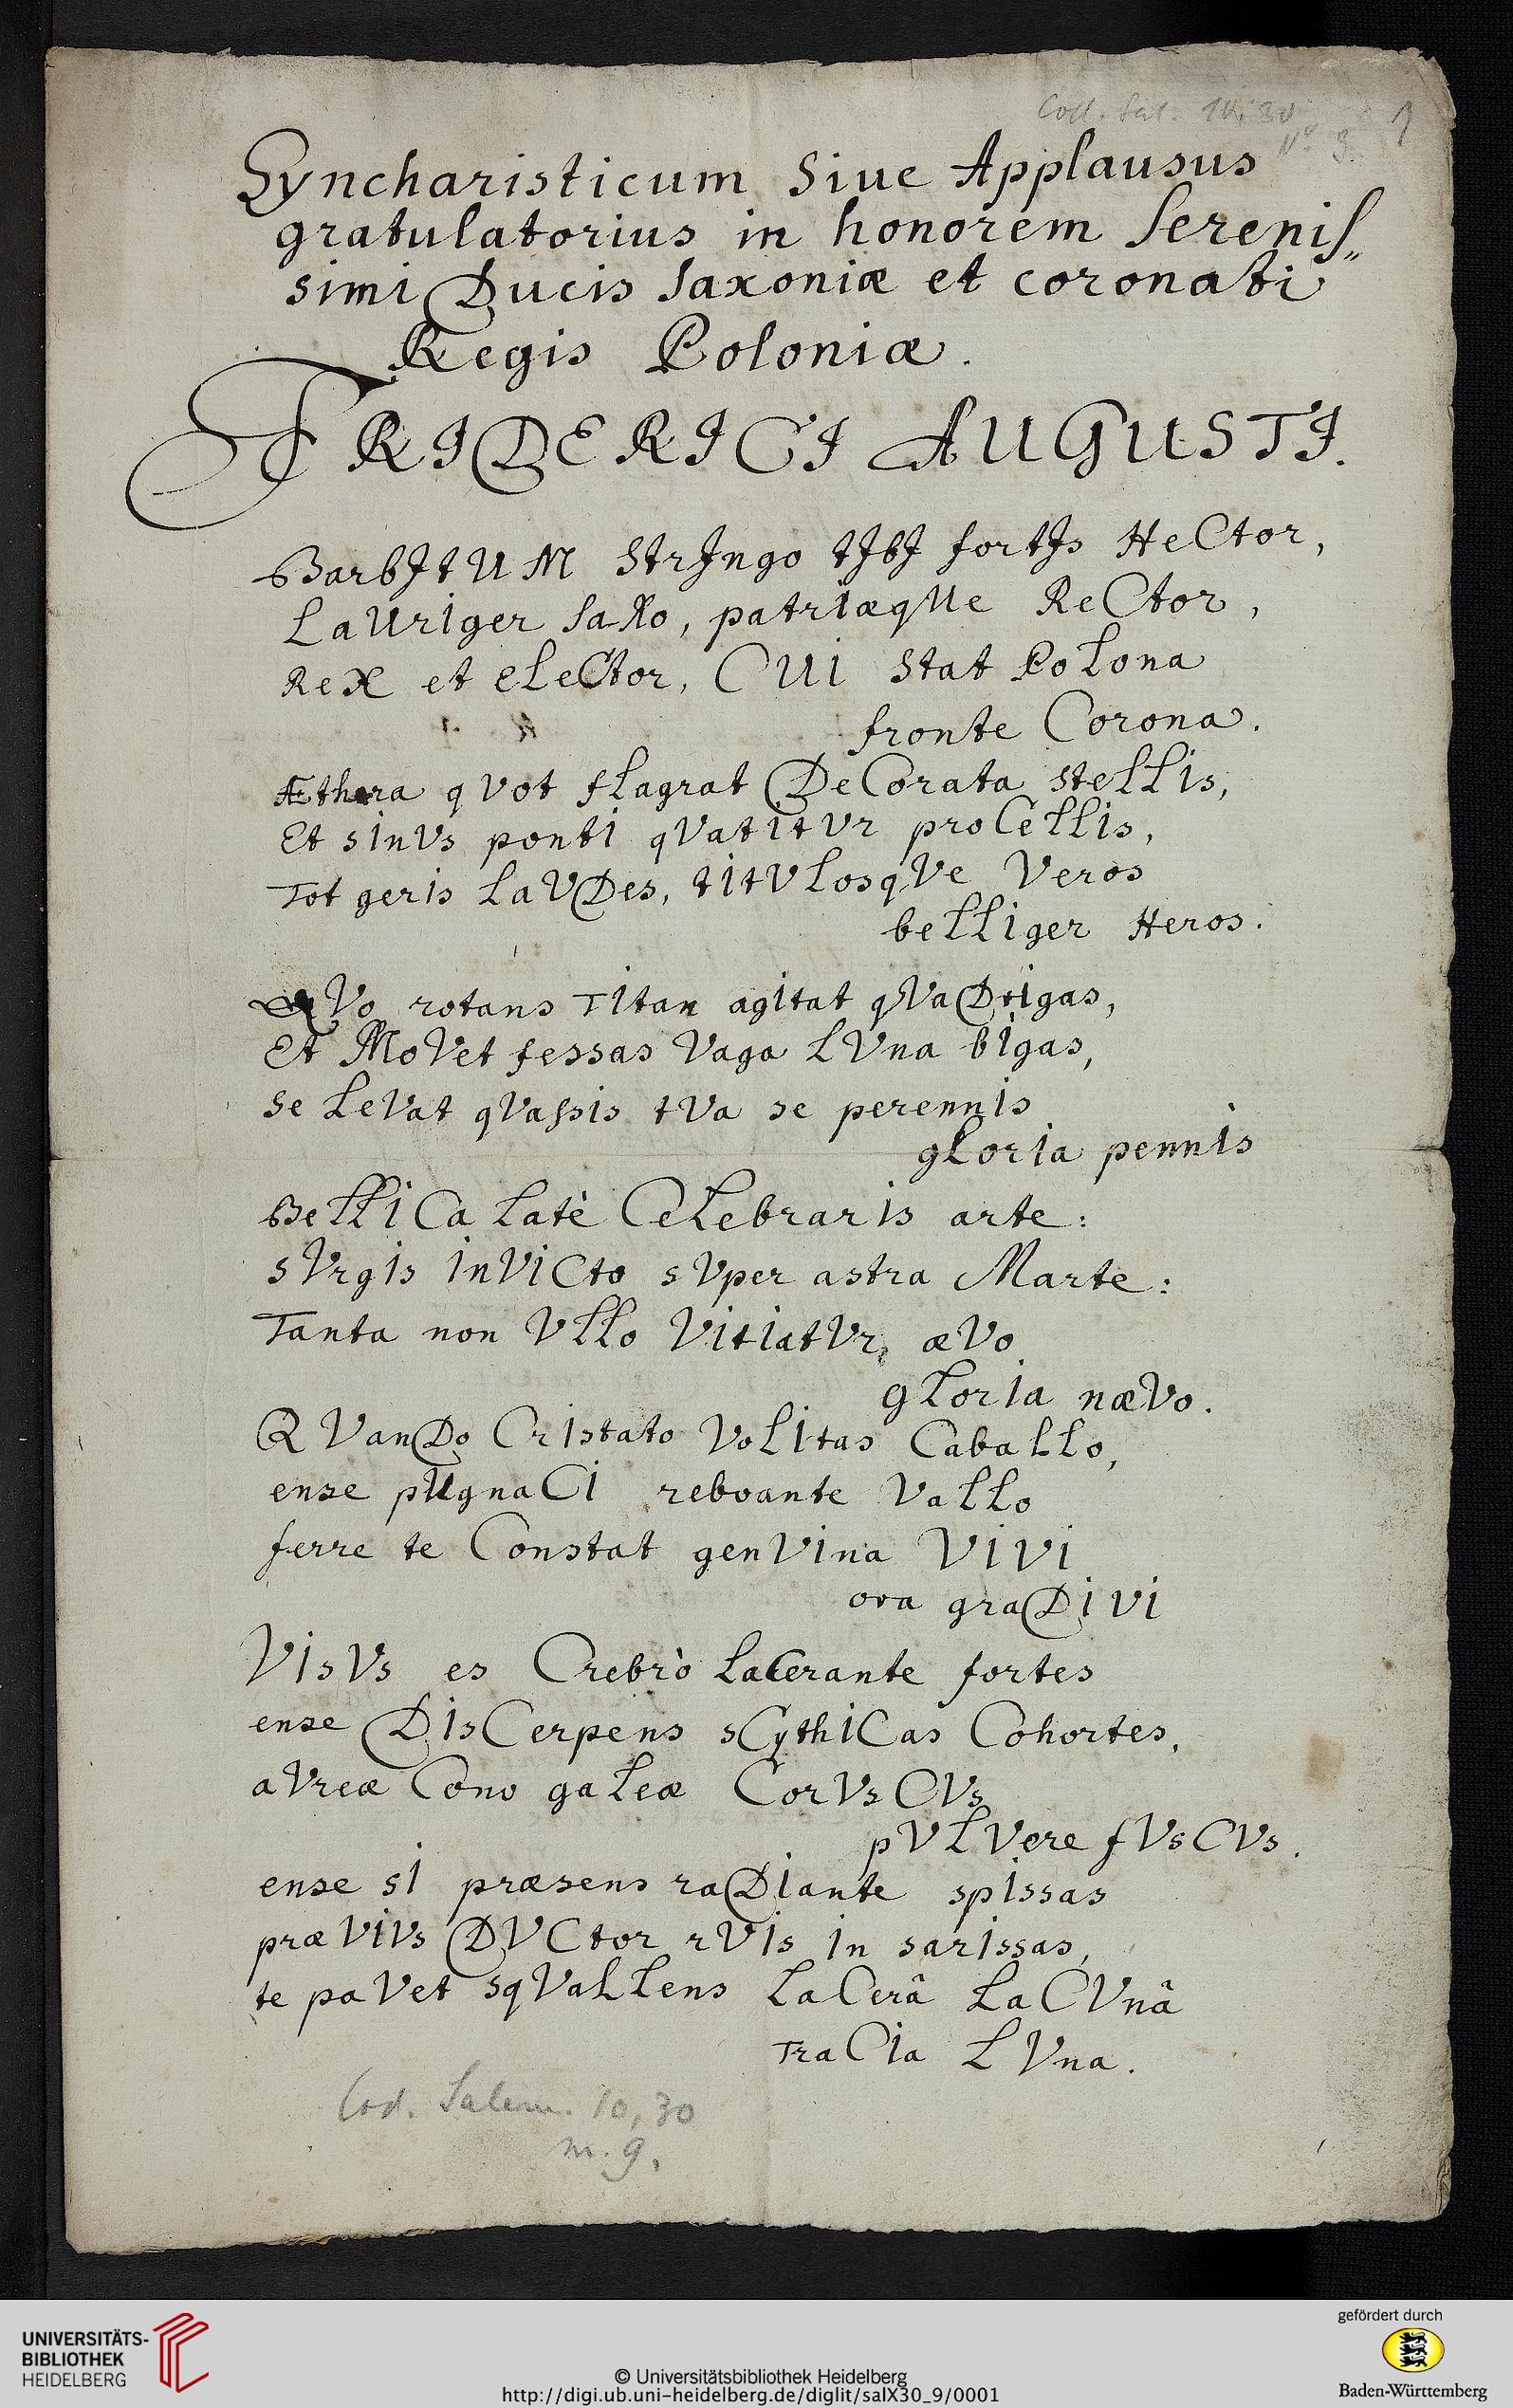 Cod. Sal. 10,30
No 9.
1
Syncharisticum Siue Applausus
gratulatorius in honorem Serenis„
simi Ducis Saxoniæ et coronati
Regis Poloniæ.
FRIDERICI AUGUSTI.
BarbItUM StrIngo tIbI fortIs HeCtor,
LaUrIger SaXo, patrIæqUe ReCtor,
ReX et eLeCtor, CUI Stat PoLona
fronte Corona.
Æthera qVot fLagrat DeCorata steLLIs,
Et sInVs pontI qVatItVr proCeLLIs,
Tot gerIs LaVDes, tItVLosqVe Veros
beLLIger Heros.
QVo rotans TItan agItat qVaDrIgas,
Et MoVet fessas Vaga LVna bIgas,
Se LeVat qVassis tVa se perennIs
gLorIa pennIs
BeLLICa Latè CeLebrarIs arte:
sVrgIs InVICto sVper astra Marte:
Tanta non VLLo VItIatVr æVo
gLorIa næVo.
QVanDo CrIstato VoLItas CabaLLo,
ense pUgnaCI reboante VaLLo
ferre te Constat genVIna VIVI
ora graDIVI
VIsVs es Crebrò LaCerante fortes
ense DIsCerpens sCythICas Cohortes,
aVreæ Cono gaLeæ CorVsCVs
pVLVere fVsCVs.
ense sI præsens raDIante spIssas
præVIVs DVCtor rVIs In sarIssas,
te paVet sqVaLLens LaCerâ LaCVnâ
TraCIa LVna.
Cod. Salem. 10,30
m. 9.
UNIVERSITÄTS-
BIBLIOTHEK
HEIDELBERG
© Universitätsbibliothek Heidelberg
http://digi.ub.uni-heidelberg.de/diglit/salX30_9/0001
gefördert durch
Baden-Württemberg